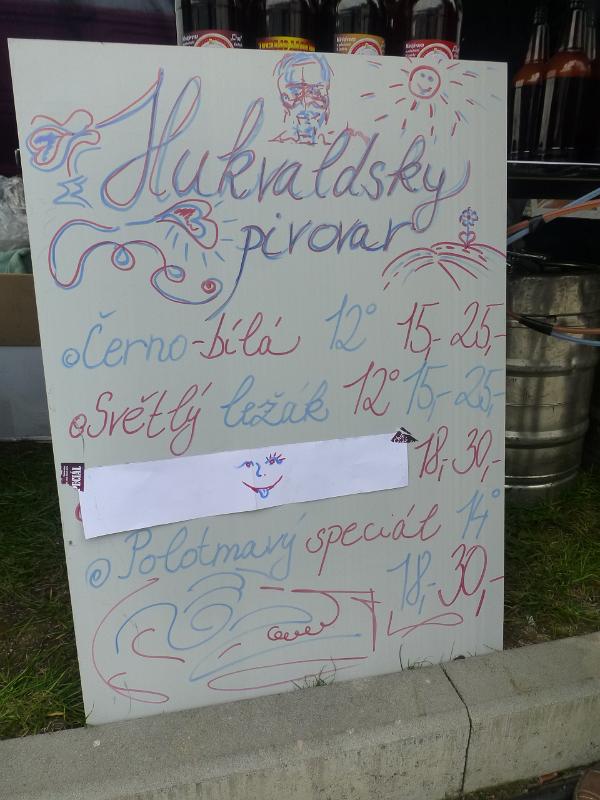 Hukvaldský
pivovar
Černo-bílá 12° 15,- 25,-
Světlý ležák 12° 15,- 25,-
18,- 30,-
SPECIÁL
Polotmavý speciál 14°
18,- 30,-